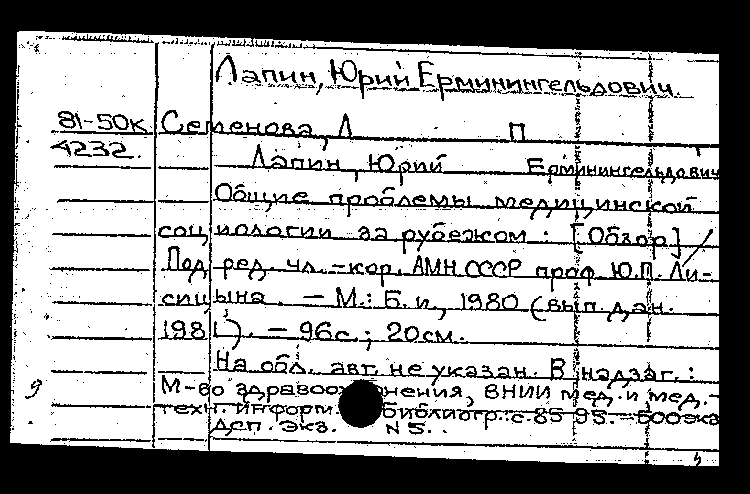 Лапин, Юрий Ерминингельдович.
81-50к Семенова, Л П
4232. Лапин, Юрий Ерминингельдович
Общие проблемы медицинской
социологии за рубежом : [Обзор] /
Под ред. чл. -кор. АМН СССР проф. Ю.П. Ли-
сицына. — М.: Б. и., 1980 (вып. дан.
1981). — 96с.; 20см.
На обл. авт. не указан. В надзаг.:
М-во здравоохранения, ВНИИ мед. и мед.-
техн. информ. Библиогр.: с. 85 95. — 500экз
Дсп. Экз. N 5.
9